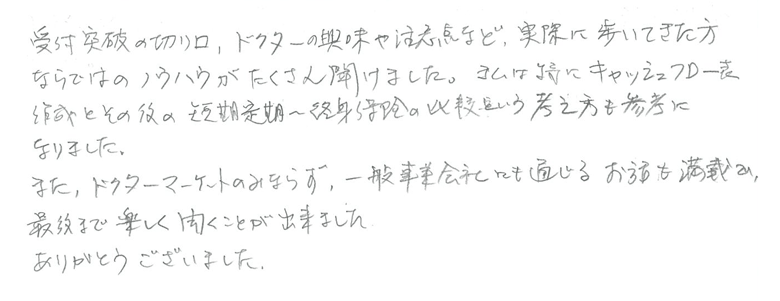 受付突破の切り口，ドクターの興味や注意点など，実際に歩いてきた方
ならではのノウハウがたくさん聞けました。私は特にキャッシュフロー表
作成とその後の短期定期〜終身保険の比較という考え方も参考に
なりました。
また，ドクターマーケットのみならず，一般事業会社にも通じるお話も満載で，
最後まで楽しく聞くことが出来ました
ありがとうございました．